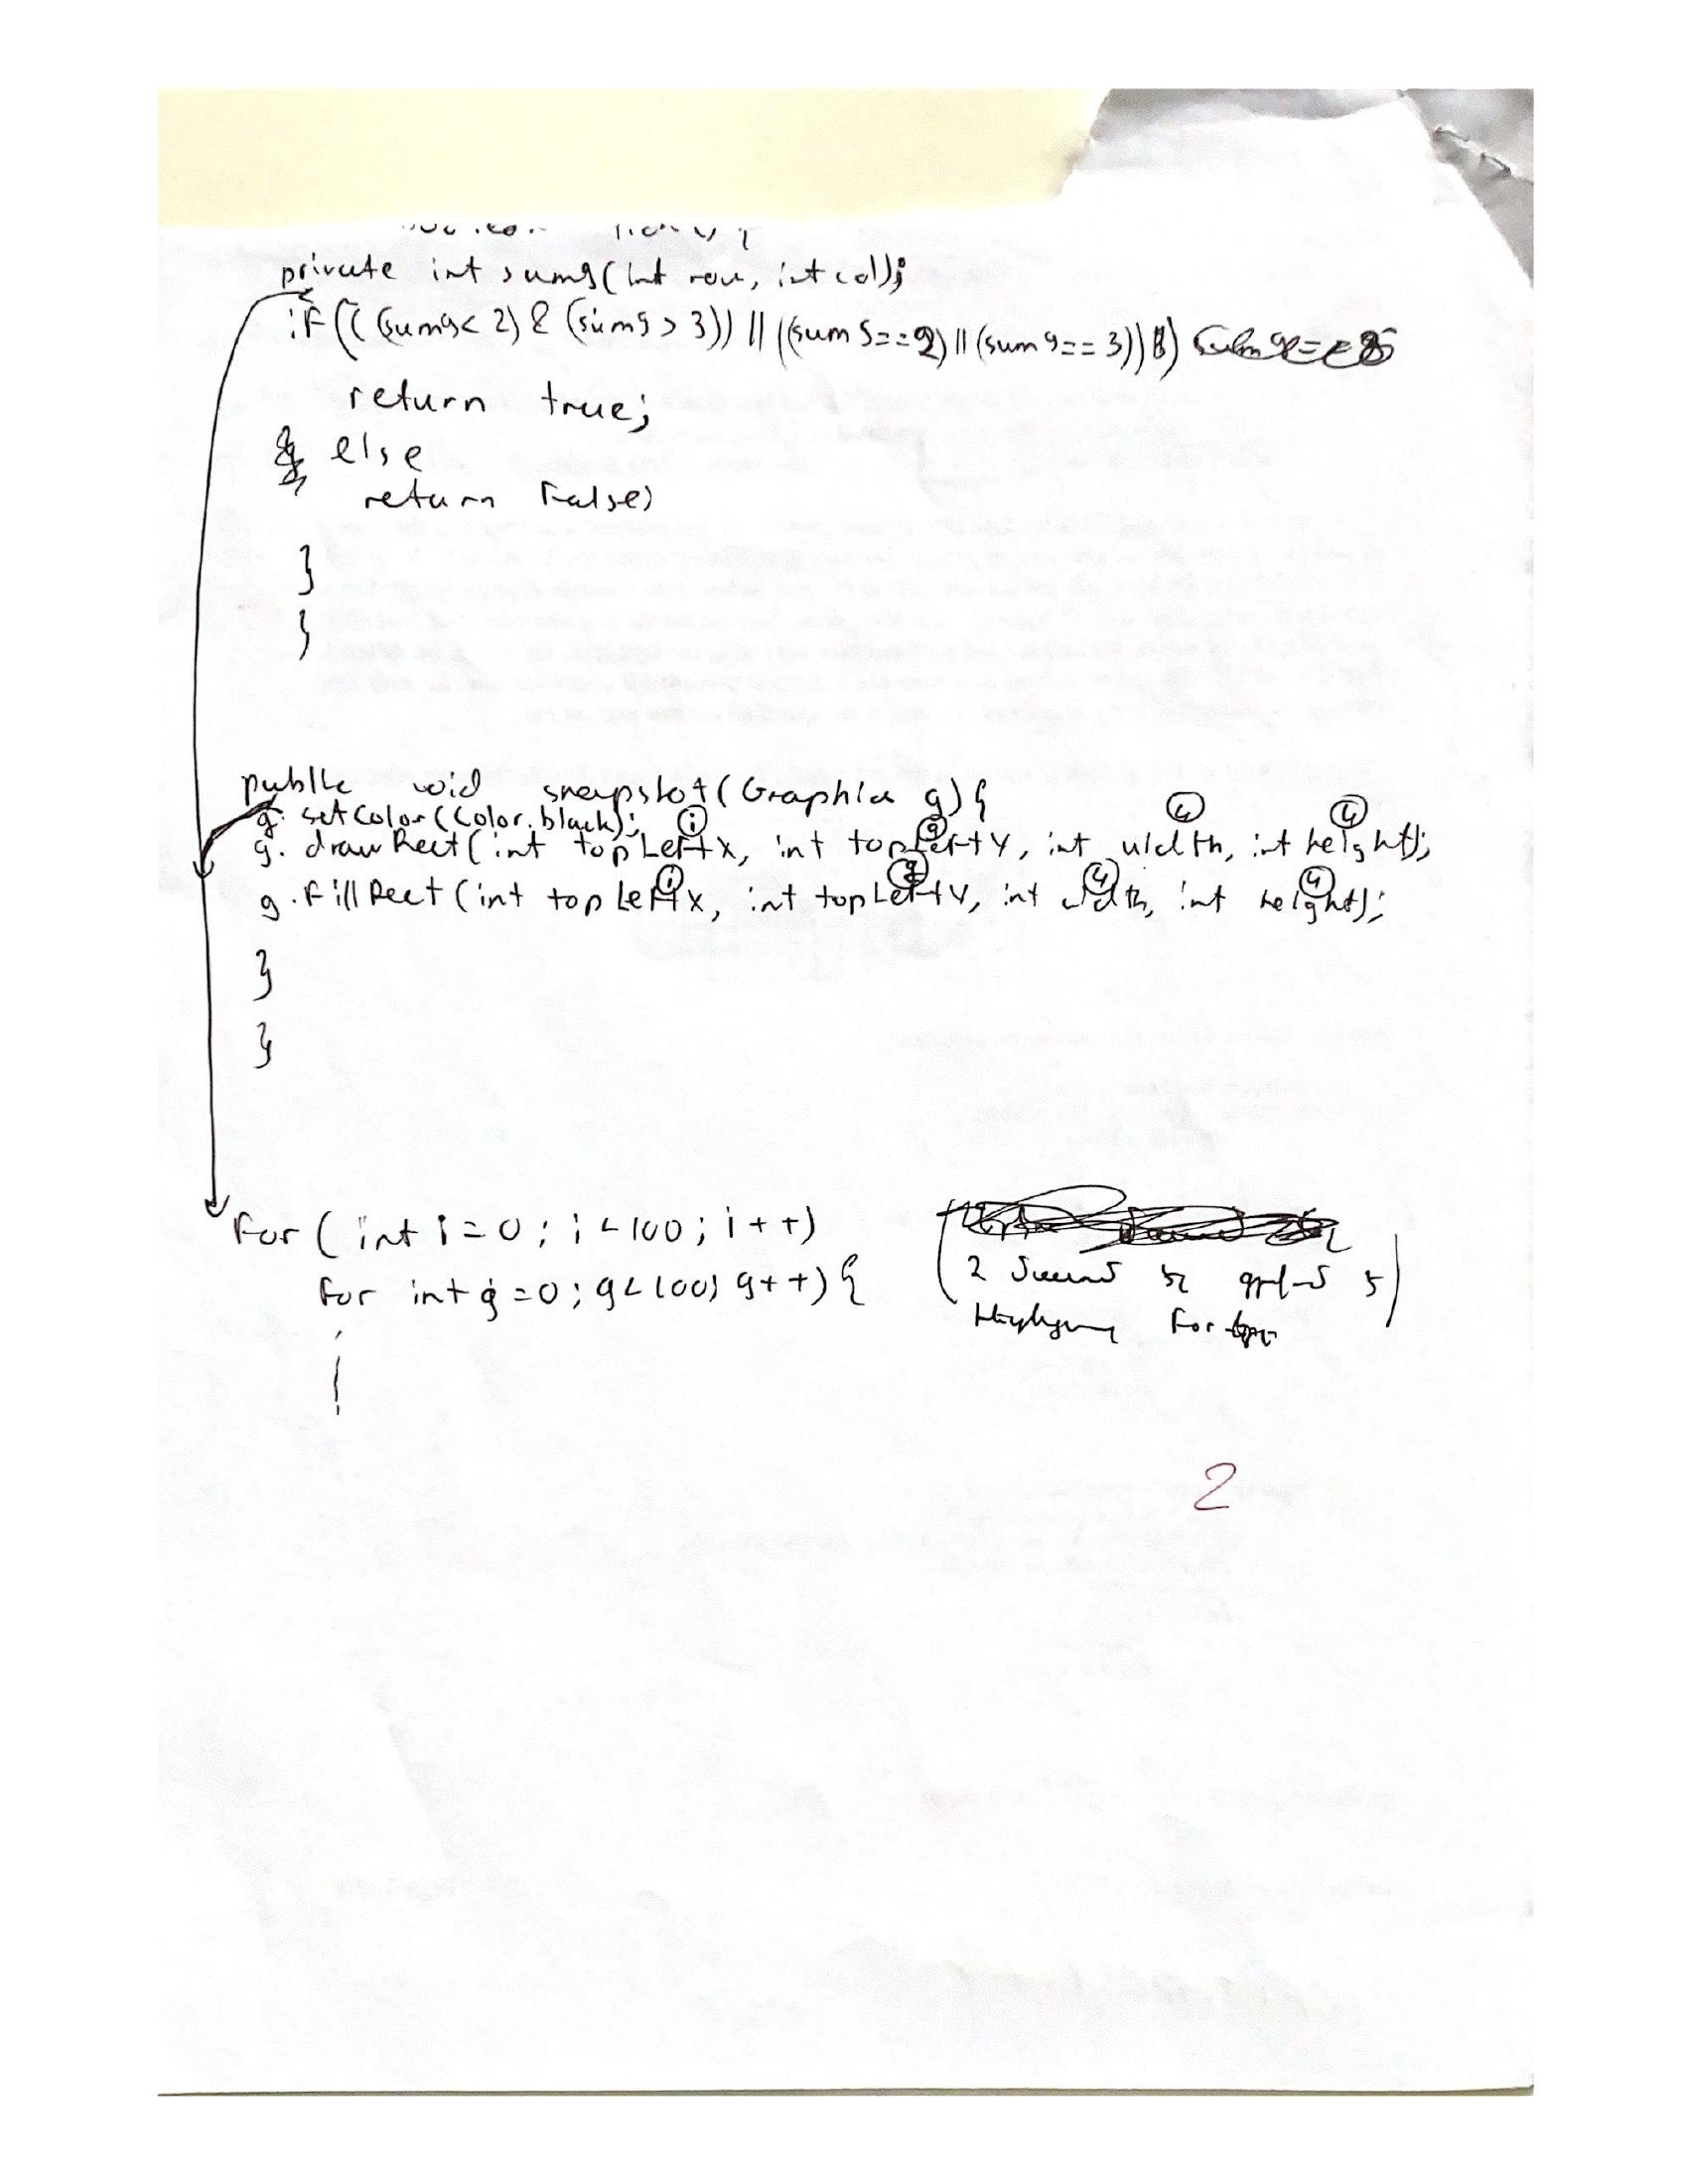 private int sum9(int row, int col);
if(((sum9<2) & (sum9 > 3)) || ((sum9==2) || (sum9==3)))
return true;
else
return false;
}
}
public void snapshot(Graphics g) {
g. setColor(Color.black);
i 9 4 4
g. drawRect(int topLeftX, int topLeftY, int width, int height);
i 9 4 4
g. fillRect(int topLeftX, int topLeftY, int width, int height);
}
}
for( int i = 0; i < 100; i++)
for int g = 0; g < 100; g++) {
2
for
2